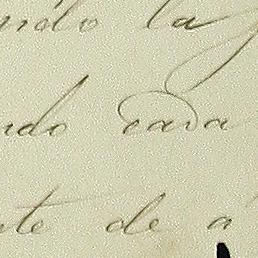 ndo la
ndo cada
nte de a